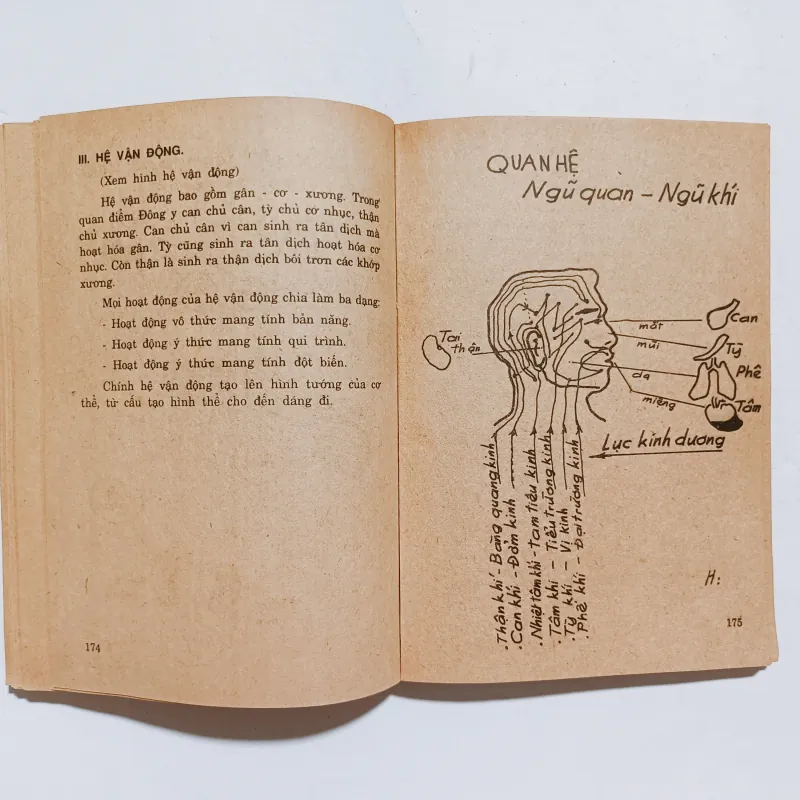 III. HỆ VẬN ĐỘNG.
(Xem hình hệ vận động)
Hệ vận động bao gồm gân - cơ - xương. Trong
quan điểm Đông y can chủ cân, tỳ chủ cơ nhục, thận
chủ xương. Can chủ cân vì can sinh ra tân dịch mà
hoạt hóa gân. Tỳ cũng sinh ra tân dịch hoạt hóa cơ
nhục. Còn thận là sinh ra thận dịch bôi trơn các khớp
xương.
Mọi hoạt động của hệ vận động chia làm ba dạng:
- Hoạt động vô thức mang tính bản năng.
- Hoạt động ý thức mang tính qui trình.
- Hoạt động ý thức mang tính đột biến.
Chính hệ vận động tạo lên hình tướng của cơ
thể, từ cấu tạo hình thể cho đến dáng đi.
174
QUAN HỆ
Ngũ quan - Ngũ khí
Tai
thận
mắt
Can
mũi
Tỳ
da
Phế
miệng
Tâm
Lục kinh dương
. Thận khí - Bàng quang kinh
. Can khí - Đởm kinh
. Nhiệt tâm khí - tam tiêu kinh
. Tâm khí - Tiểu trường kinh
. Tỳ khí - Vị kinh
. Phế khí - Đại trường kinh
H:
175